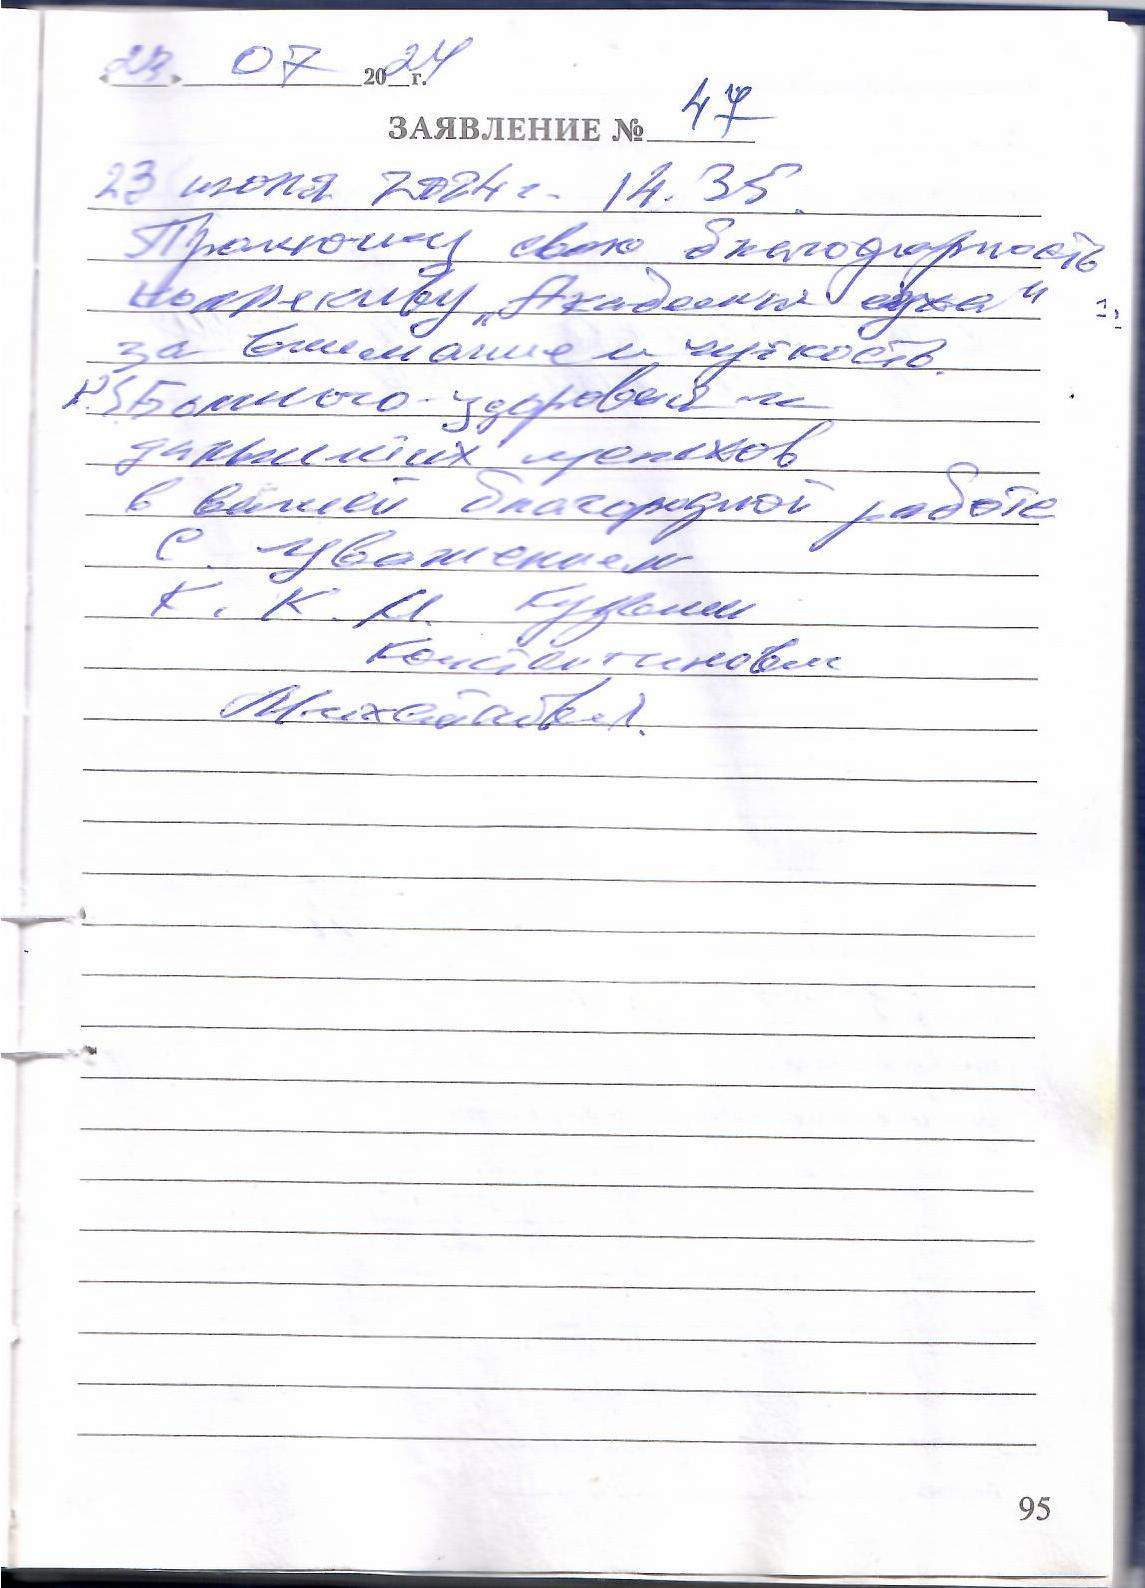 «23» 07 2024 г.
ЗАЯВЛЕНИЕ № 47
23 июля 2024 г. 14.35.
Приношу свою благодарность
коллективу „Академия слуха“
за внимание и чуткость.
P.S Большого здоровья и
дальнейших успехов
в вашей благородной работе
С уважением
К. К. М.
Константинович
95